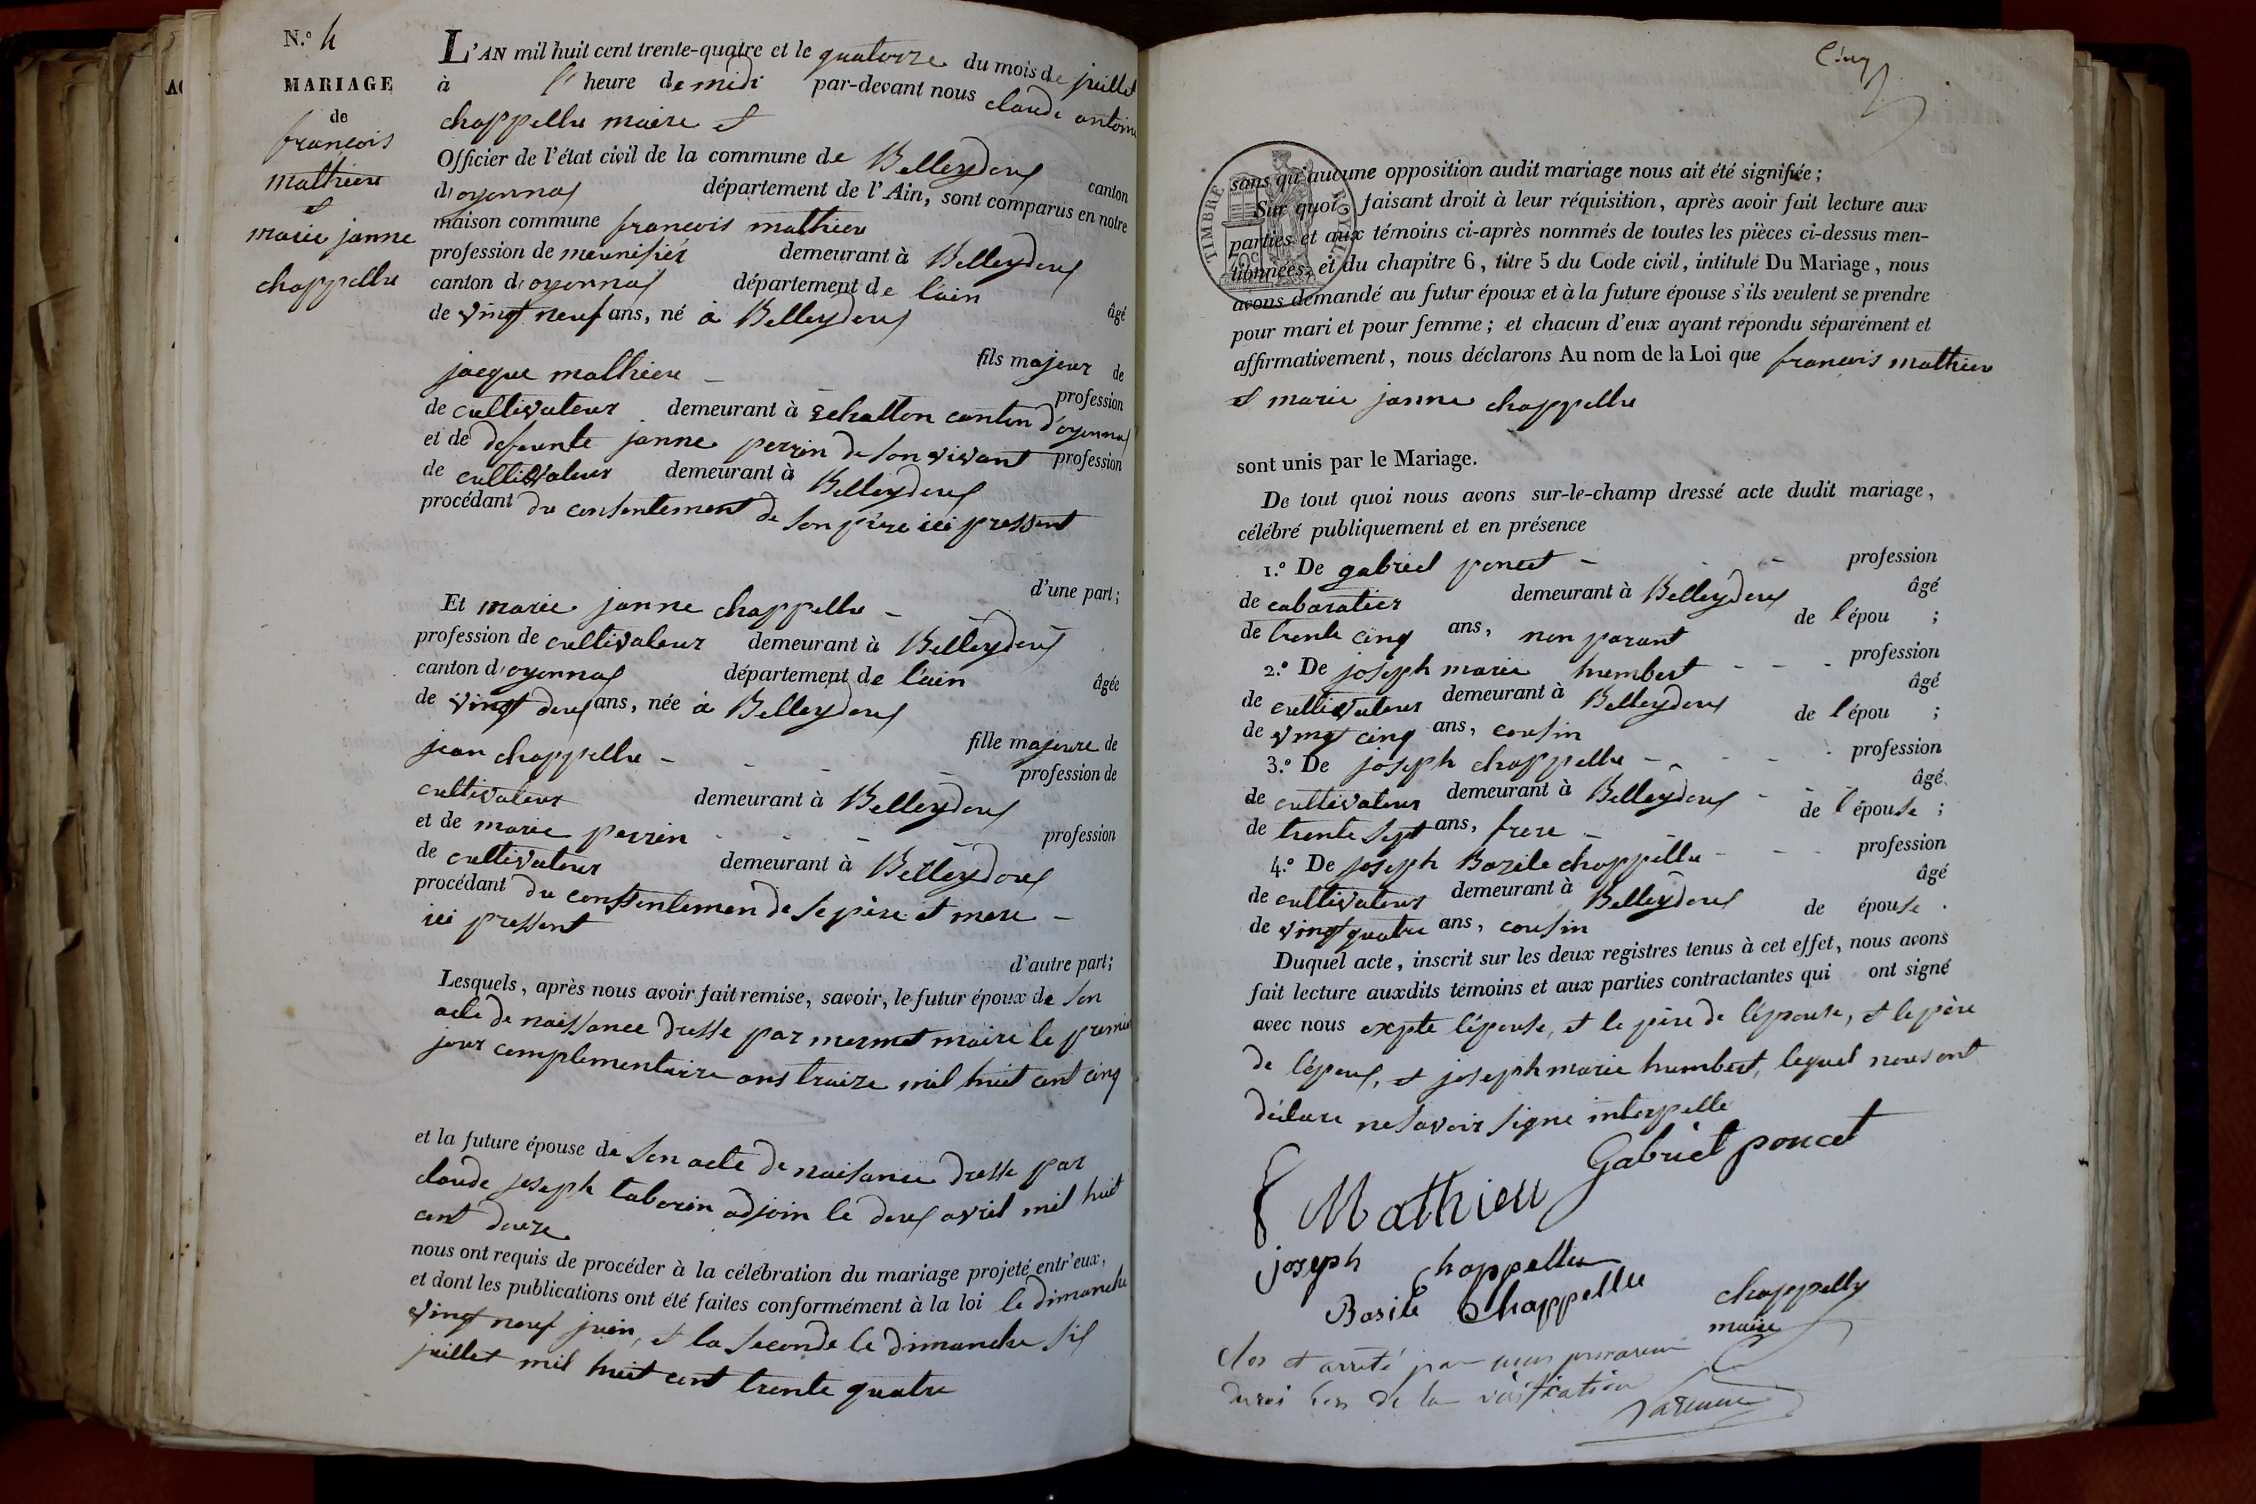 N.º 4
MARIAGE
de
francois
mathieu
et
marie janne
chappellu
L'AN mil huit cent trente-quatre et le quatorze du mois de juillet
à l' heure de midi par-devant nous claude antoine
chappellu maire et
Officier de l'état civil de la commune de Belleydoux canton
d'oyonnax département de l'Ain, sont comparus en notre
maison commune francois mathieu
profession de meunisier demeurant à Belleydoux
canton d'oyonnax département de l'ain âgé
de vingt neuf ans, né à Belleydoux
fils majeur de
jacque mathieu profession
de cultivateur demeurant à Echallon canton d'oyonnax
et de defeunte janne perrin de son vivant profession
de cultivateur demeurant à Belleydoux
procédant du consentement de son père ici pressent
d'une part;
Et marie janne chappellu
profession de cultivateur demeurant à Belleydoux
canton d'oyonnax département de l'ain âgée
de vingt deux ans, née à Belleydoux
fille majeure de
jean chappellu profession de
cultivateur demeurant à Belleydoux
et de marie perrin profession
de cultivateur demeurant à Belleydoux
procédant du conssentemen de se père et mere
ici pressent
d'autre part;
Lesquels, après nous avoir fait remise, savoir, le futur époux de son
acte de naissance dresse par mermet maire le premier
jour complementaire ans traize mil huit cent cinq
et la future épouse de son acte de naisance dresse par
claude joseph taborin adjoin le deux avril mil huit
cent douze
nous ont requis de procéder à la célébration du mariage projeté entr'eux,
et dont les publications ont été faites conformément à la loi le dimanche
vingt neuf juin, et la seconde le dimanche six
juillet mil huit cent trente quatre
Cinq
TIMBRE ROYAL
sans qu'aucune opposition audit mariage nous ait été signifiée;
Sur quoi faisant droit à leur réquisition, après avoir fait lecture aux
parties et aux témoins ci-après nommés de toutes les pièces ci-dessus men-
tionnées, et du chapitre 6, titre 5 du Code civil, intitulé Du Mariage, nous
avons demandé au futur époux et à la future épouse s'ils veulent se prendre
pour mari et pour femme; et chacun d'eux ayant répondu séparément et
affirmativement, nous déclarons Au nom de la Loi que francois mathieu
et marie janne chappellu
sont unis par le Mariage.
De tout quoi nous avons sur-le-champ dressé acte dudit mariage,
célébré publiquement et en présence
1.º De gabriel poncet profession
de cabaratier demeurant à Belleydoux âgé
de trente cinq ans, non parant de l'épou ;
2.º De joseph marie humbert profession
de cultivateur demeurant à Belleydoux âgé
de vingt cinq ans, cousin de l'épou ;
3.º De joseph chappellu profession
de cultivateur demeurant à Belleydoux âgé
de trente sept ans, frere de l'épouse ;
4.º De joseph Bazile chappellu profession
de cultivateur demeurant à Belleydoux âgé
de vingt quatre ans, cousin de épouse .
Duquel acte, inscrit sur les deux registres tenus à cet effet, nous avons
fait lecture auxdits témoins et aux parties contractantes qui ont signé
avec nous expte l'épouse, et le père de l'épouse, et le père
de l'époux, et joseph marie humbert, lequel nous ont
déclare ne savoir signe interpelle
Gabriel poncet
f Mathieu
joseph chappellu
Basile Chappellu
chappellu
maire
Clos et arreté par nous procureur
du roi lors de la vérification